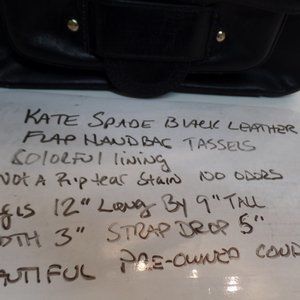 KATE SPADE BLACK LEATHER
FLAP HANDBAG TASSELS
COLORFUL lining
NOT A Rip tear Stain ODORS
12" LONG By 9" TALL
3" STRAP DROP 5"
PRE-OWNED